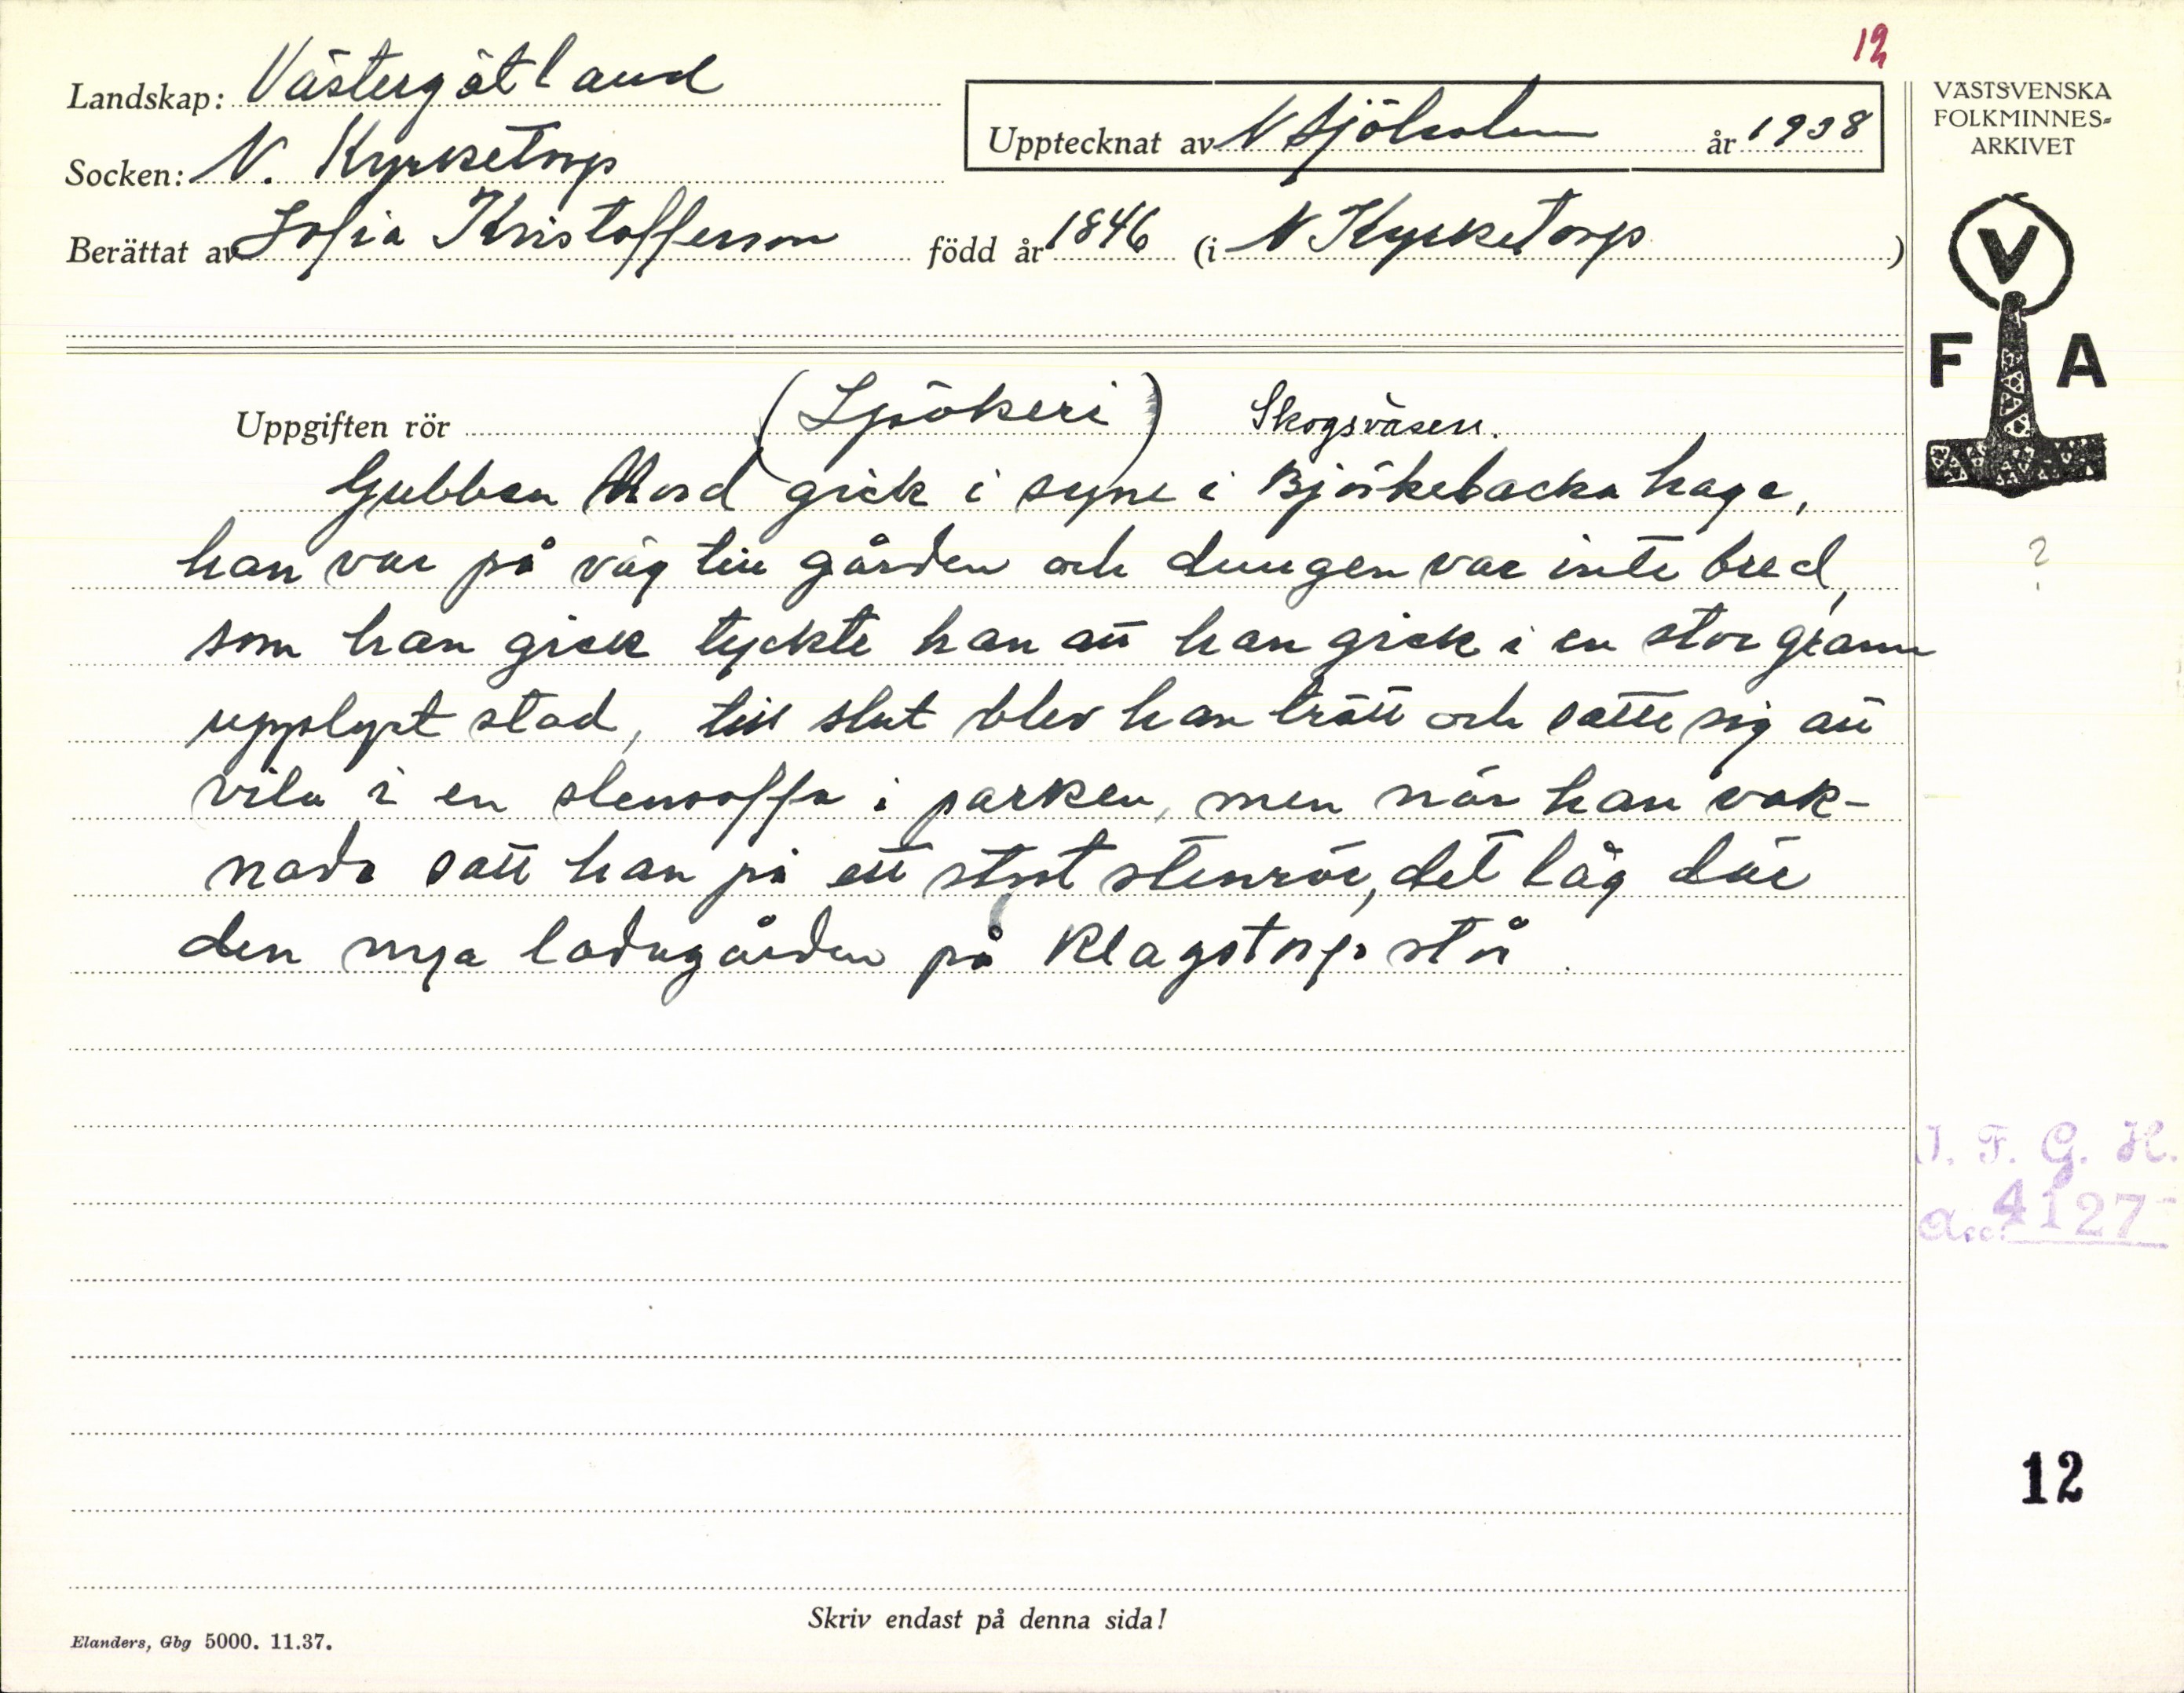 12
Landskap: Västergötland
Upptecknat av N Sjöholm år 1938
Socken: N. Kyrketorp
Berättat av Sofia Kristofferson född år 1846 (i N Kyrketorp)
VÄSTSVENSKA
FOLKMINNES-
ARKIVET
V
F A
Uppgiften rör (Spökeri) Skogsväsen.
Gubben Mord gick i syne i Björkebacka hage,
han var på väg till gården och dungen var inte bred,
som han gick tyckte han att han gick i en stor grann
upplyst stad, till slut blev han trött och satte sig att
vila i en stensoffa i parken, men när han vak-
nade satt han på ett stort stenrör, det låg där
den nya ladugården på Klagstorp står.
?
I. F. G. H.
Acc. 4127
12
Skriv endast på denna sida!
Elanders, Gbg 5000. 11.37.